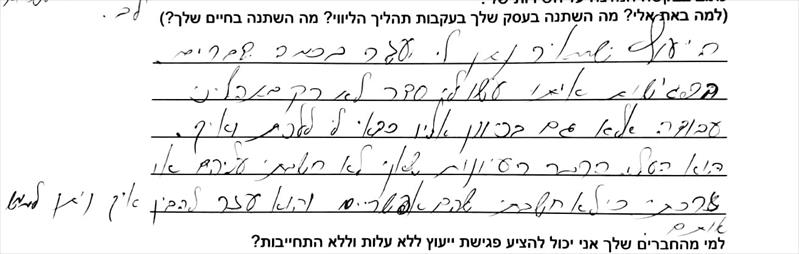 (למה באת אלי? מה השתנה בעסק שלך בעקבות תהליך הליווי? מה השתנה בחיים שלך?)
היעוץ נתן לי עזרה בכמה דברים.
הפגישות איתו עשו לי סדר לא רק בתהליכי
עבודה אלא גם בכיוון אליו כדאי לי ללכת ואיך.
הוא העלה הרבה רעיונות שאני לא חשבתי עליהם או
כי לא חשבתי שהם אפשריים והוא עזר להבין איך ניתן לממש
אותם.
למי מהחברים שלך אני יכול להציע פגישת ייעוץ ללא עלות וללא התחייבות?